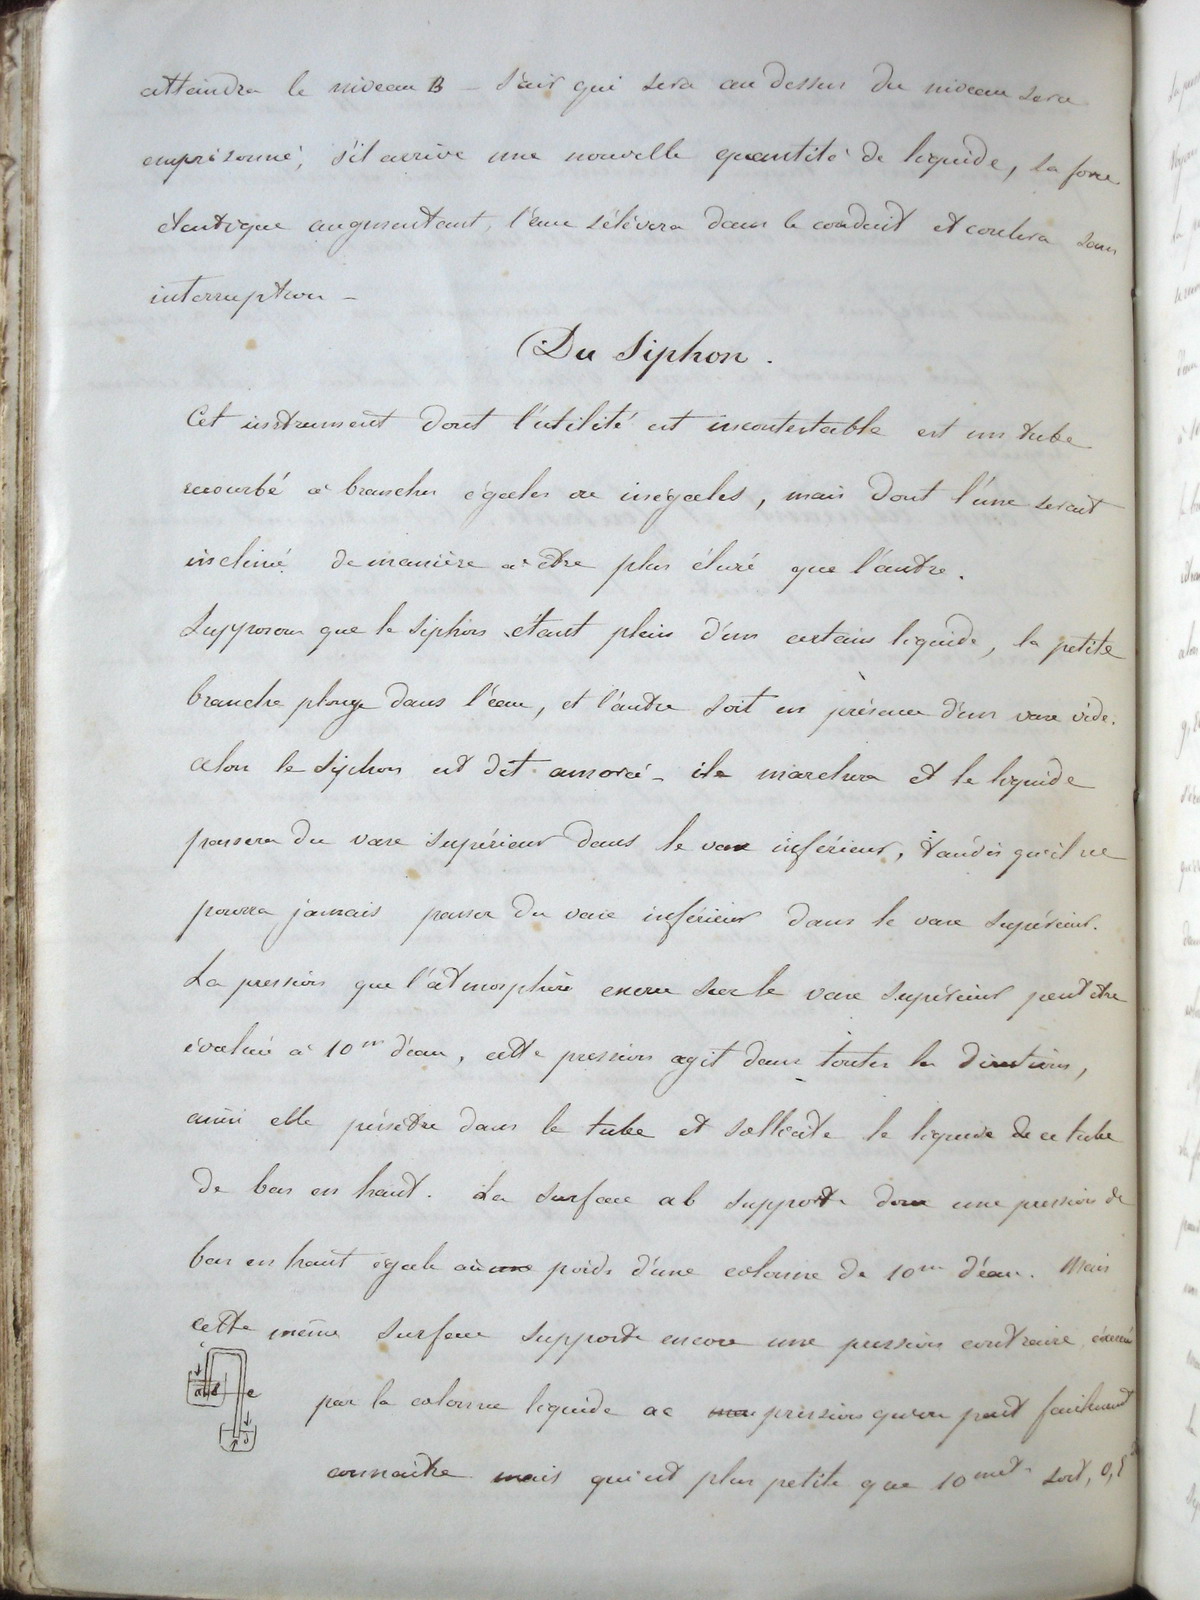 atteindra le niveau B – l'air qui sera au dessus du niveau sera
emprisonné, s'il arrive une nouvelle quantité de liquide, la force
élastique augmentant, l'eau s'élèvera dans le conduit et coulera sans
interruption –
Du Siphon.
Cet instrument dont l'utilité est incontestable est un tube
recourbé à branches égales ou inégales, mais dont l'une serait
incliné de manière à être plus élevé que l'autre.
Supposons que le siphon étant plein d'un certain liquide, la petite
branche plonge dans l'eau, et l'autre soit en présence d'un vase vide.
alors le siphon est dit amorcé – il marchera et le liquide
passera du vase supérieur dans le vase inférieur, tandis qu'il ne
pourra jamais passer du vase inférieur dans le vase supérieur.
La pression que l'atmosphère exerce sur le vase supérieur peut être
évaluée à 10m d'eau, cette pression agit dans toutes les directions,
ainsi elle pénètre dans le tube et sollicite le liquide de ce tube
de bas en haut. La surface ab supporte donc une pression de
bas en haut égale au poids d'une colonne de 10m d'eau. Mais
cette même surface supporte encore une pression contraire, exercée
par la colonne liquide ac pression qu'on peut facilement
connaître mais qui est plus petite que 10 met. soit, 0,5